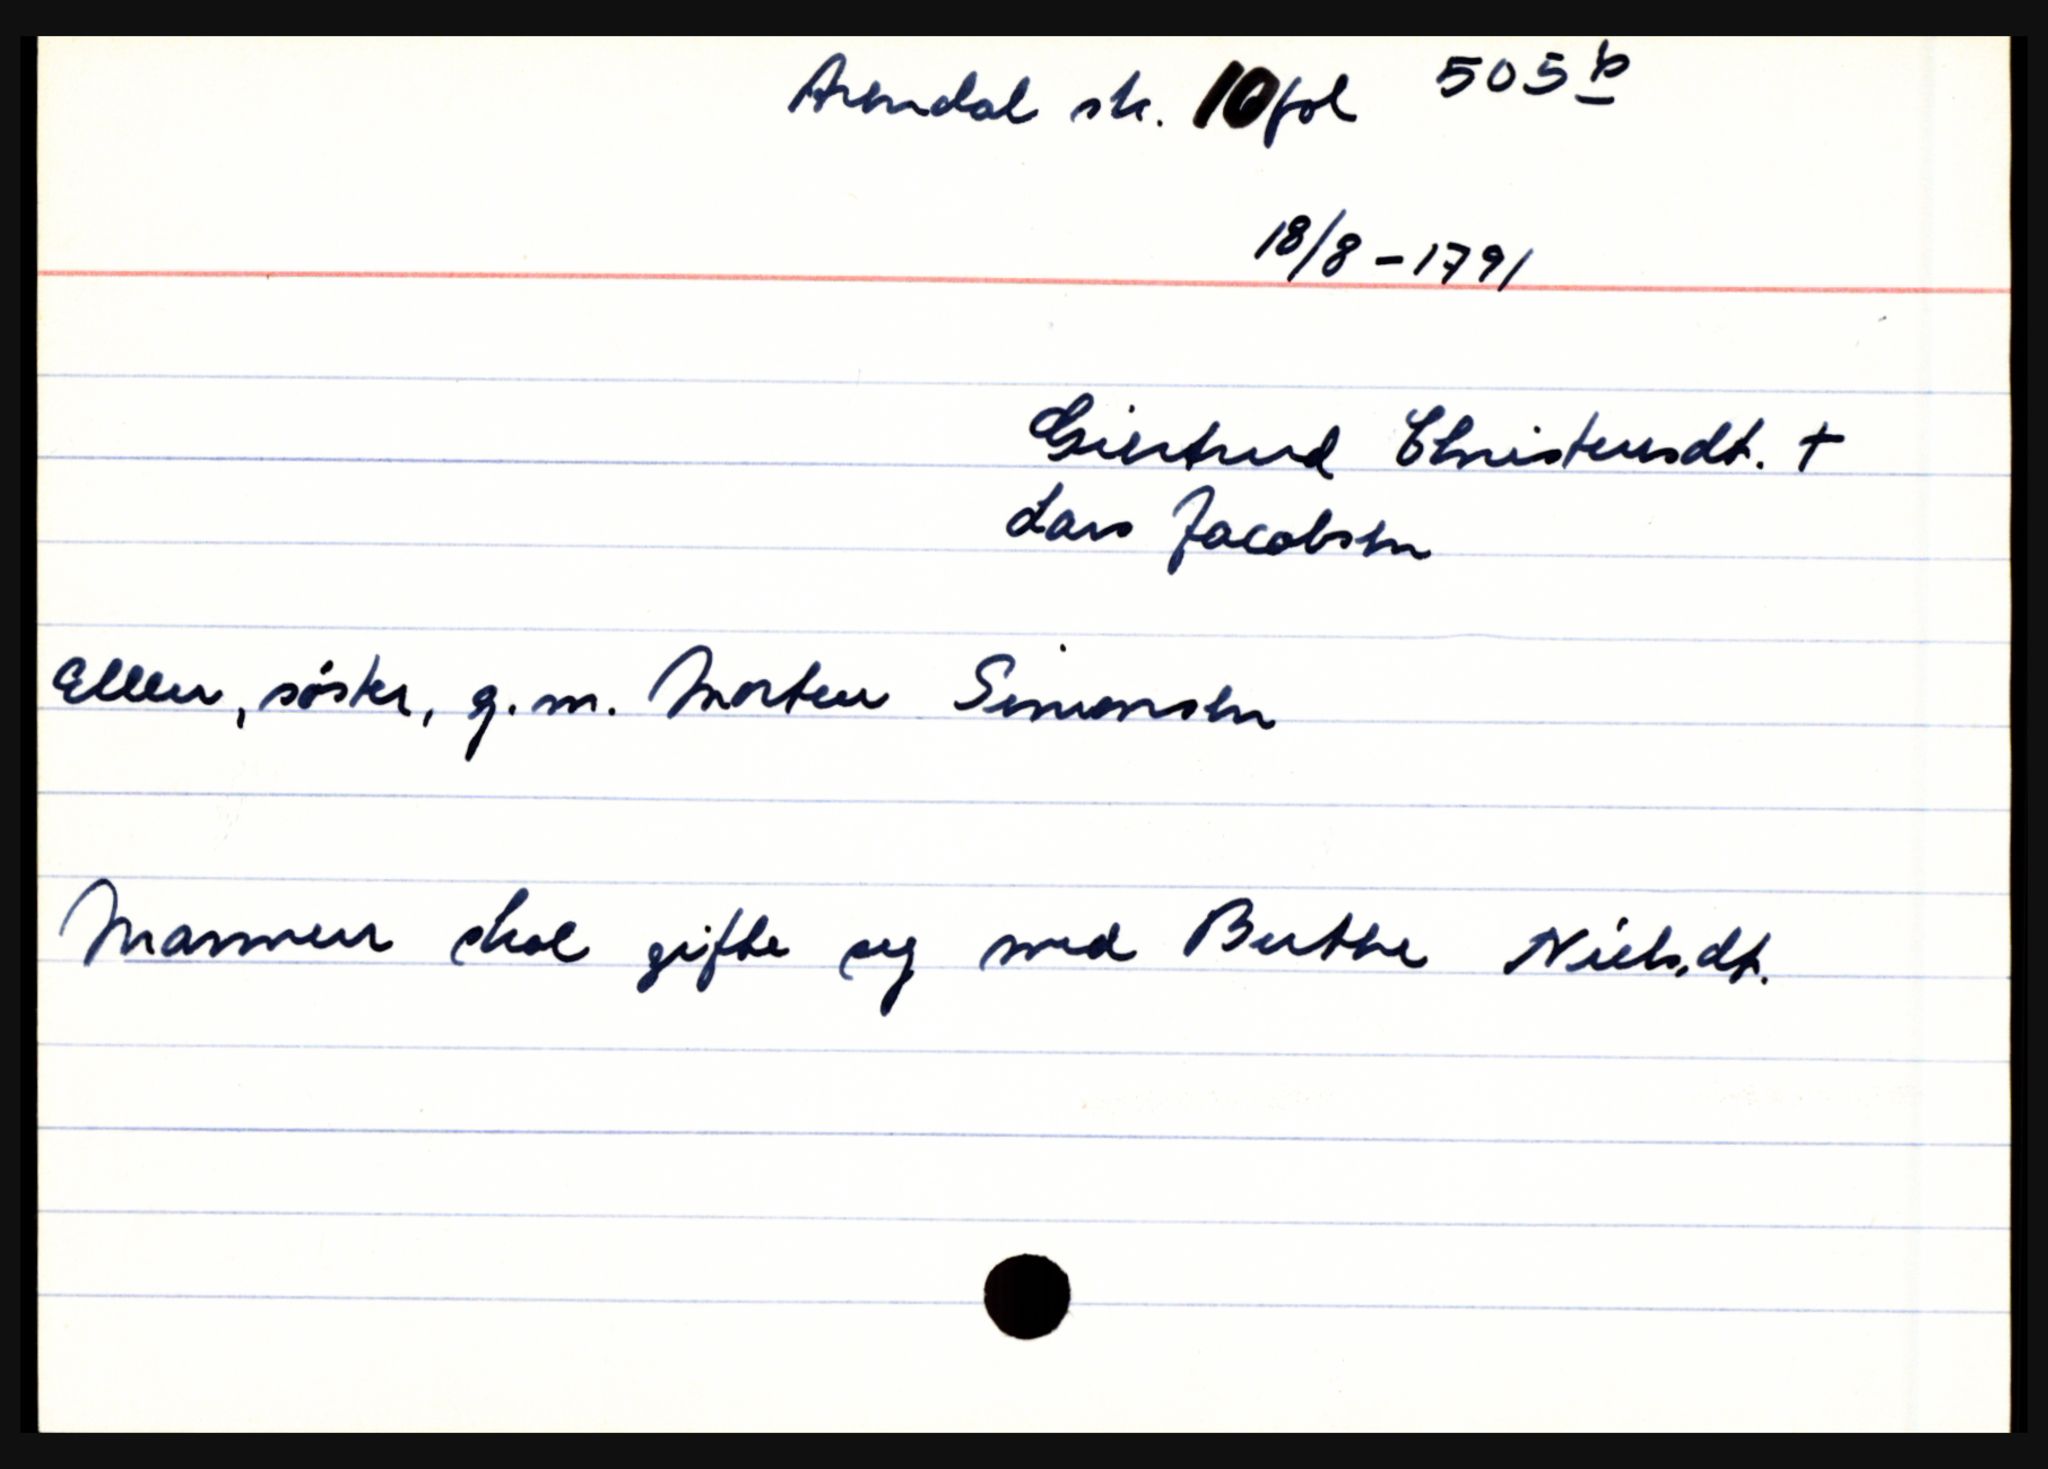 Arendal sk. 10 fol 505 b
18/8 - 1791
Giertrud Christensdt. +
Lars Jacobsen
Ellen, søster, g. m. Morten Simonsen
Mannen skal gifte seg med Berthe Nielsdt.